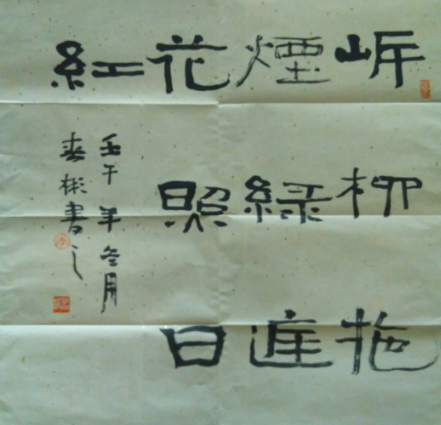 岸柳拖
煙綠庭
花照日
紅
壬午年冬月
春彬書之